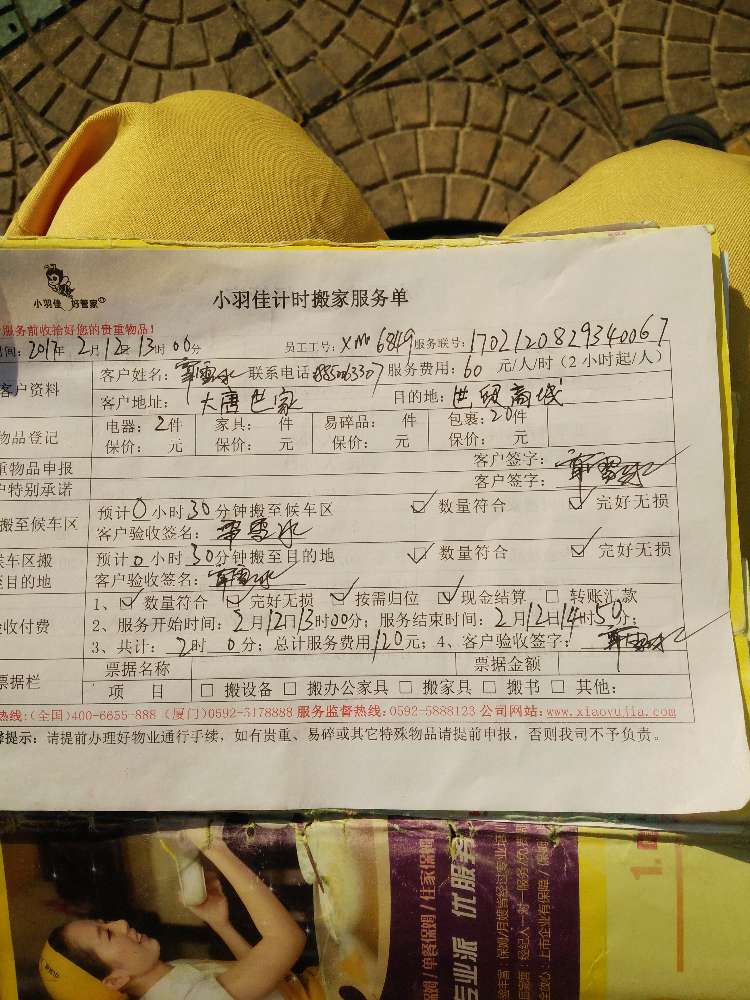 小羽佳 好管家
小羽佳计时搬家服务单
服务前收拾好您的贵重物品!
间: 2017年 2月12日 13时00分 员工工号: XM6849 服务联号: 170212082934006 7
客户资料 客户姓名: 联系电话: 服务费用: 60 元/人/时(2小时起/人)
客户地址: 大唐世家 目的地: 世贸商城
物品登记 电器: 2件 家具: 件 易碎品: 件 包裹: 20件
保价: 元 保价: 元 保价: 元 保价: 元
重物品申报 客户签字:
户特别承诺 客户签字:
搬至候车区 预计0小时30分钟搬至候车区 数量符合 完好无损
客户验收签名:
候车区搬至目的地 预计0小时30分钟搬至目的地 数量符合 完好无损
客户验收签名:
验收付费 1、 数量符合 完好无损 按需归位 现金结算 转账汇款
2、服务开始时间: 2月12日13时00分; 服务结束时间: 2月12日14时50分;
3、共计: 2时 0分; 总计服务费用120元; 4、客户验收签字:
票据栏 票据名称 票据金额
项 目 搬设备 搬办公家具 搬家具 搬书 其他:
热线:(全国)400-6655-888 (厦门)0592-5178888 服务监督热线:0592-5888123 公司网站:www.xiaoyujia.com
提示: 请提前办理好物业通行手续,如有贵重、易碎或其它特殊物品请提前申报,否则我司不予负责。
专业派 优服务
保姆/单餐保姆/住家保姆